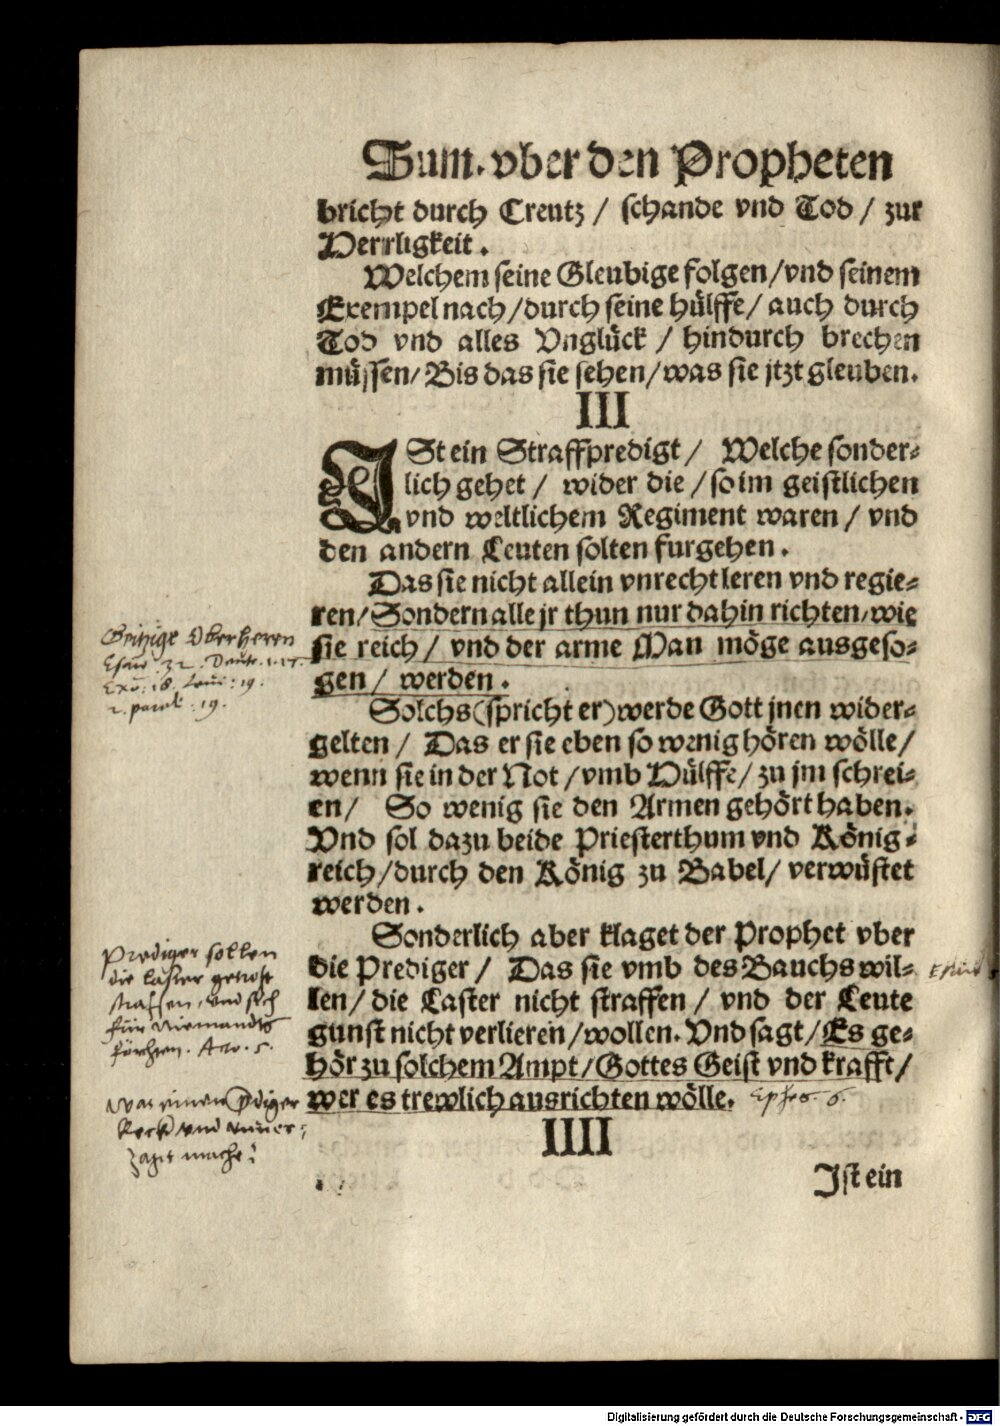 Sum. vber den Propheten
bricht durch Creutz / schande vnd Tod / zur
Herrligkeit.
Welchem seine Gleubige folgen / vnd seinem
Exempel nach / durch seine hülffe / auch durch
Tod vnd alles Vnglück / hindurch brechen
müssen / Bis das sie sehen / was sie jtzt gleuben.
III
ISt ein Straffpredigt / Welche sonder-
lich gehet / wider die / so im geistlichen
vnd weltlichem Regiment waren / vnd
den andern Leuten solten furgehen.
Das sie nicht allein vnrecht leren vnd regie-
ren / Sondern alle jr thun nur dahin richten / wie
sie reich / vnd der arme Man möge ausgeso-
gen / werden.
Geitzige Oberherrn
Solchs (spricht er) werde Gott jnen wider-
gelten / Das er sie eben so wenig hören wölle /
wenn sie in der Not / vmb Hülffe / zu jm schrei-
en / So wenig sie den Armen gehört haben.
Vnd sol dazu beide Priesterthum vnd König-
reich / durch den König zu Babel / verwüstet
werden.
Sonderlich aber klaget der Prophet vber
die Prediger / Das sie vmb des Bauchs wil-
len / die Laster nicht straffen / vnd der Leute
gunst nicht verlieren / wollen. Vnd sagt / Es ge-
hör zu solchem Ampt / Gottes Geist vnd krafft /
wer es trewlich ausrichten wölle. Ephes. 6.
Prediger sollen
die laster getrost
straffen, und sich
für Niemandts
IIII
Ist ein
Digitalisierung gefördert durch die Deutsche Forschungsgemeinschaft - DFG